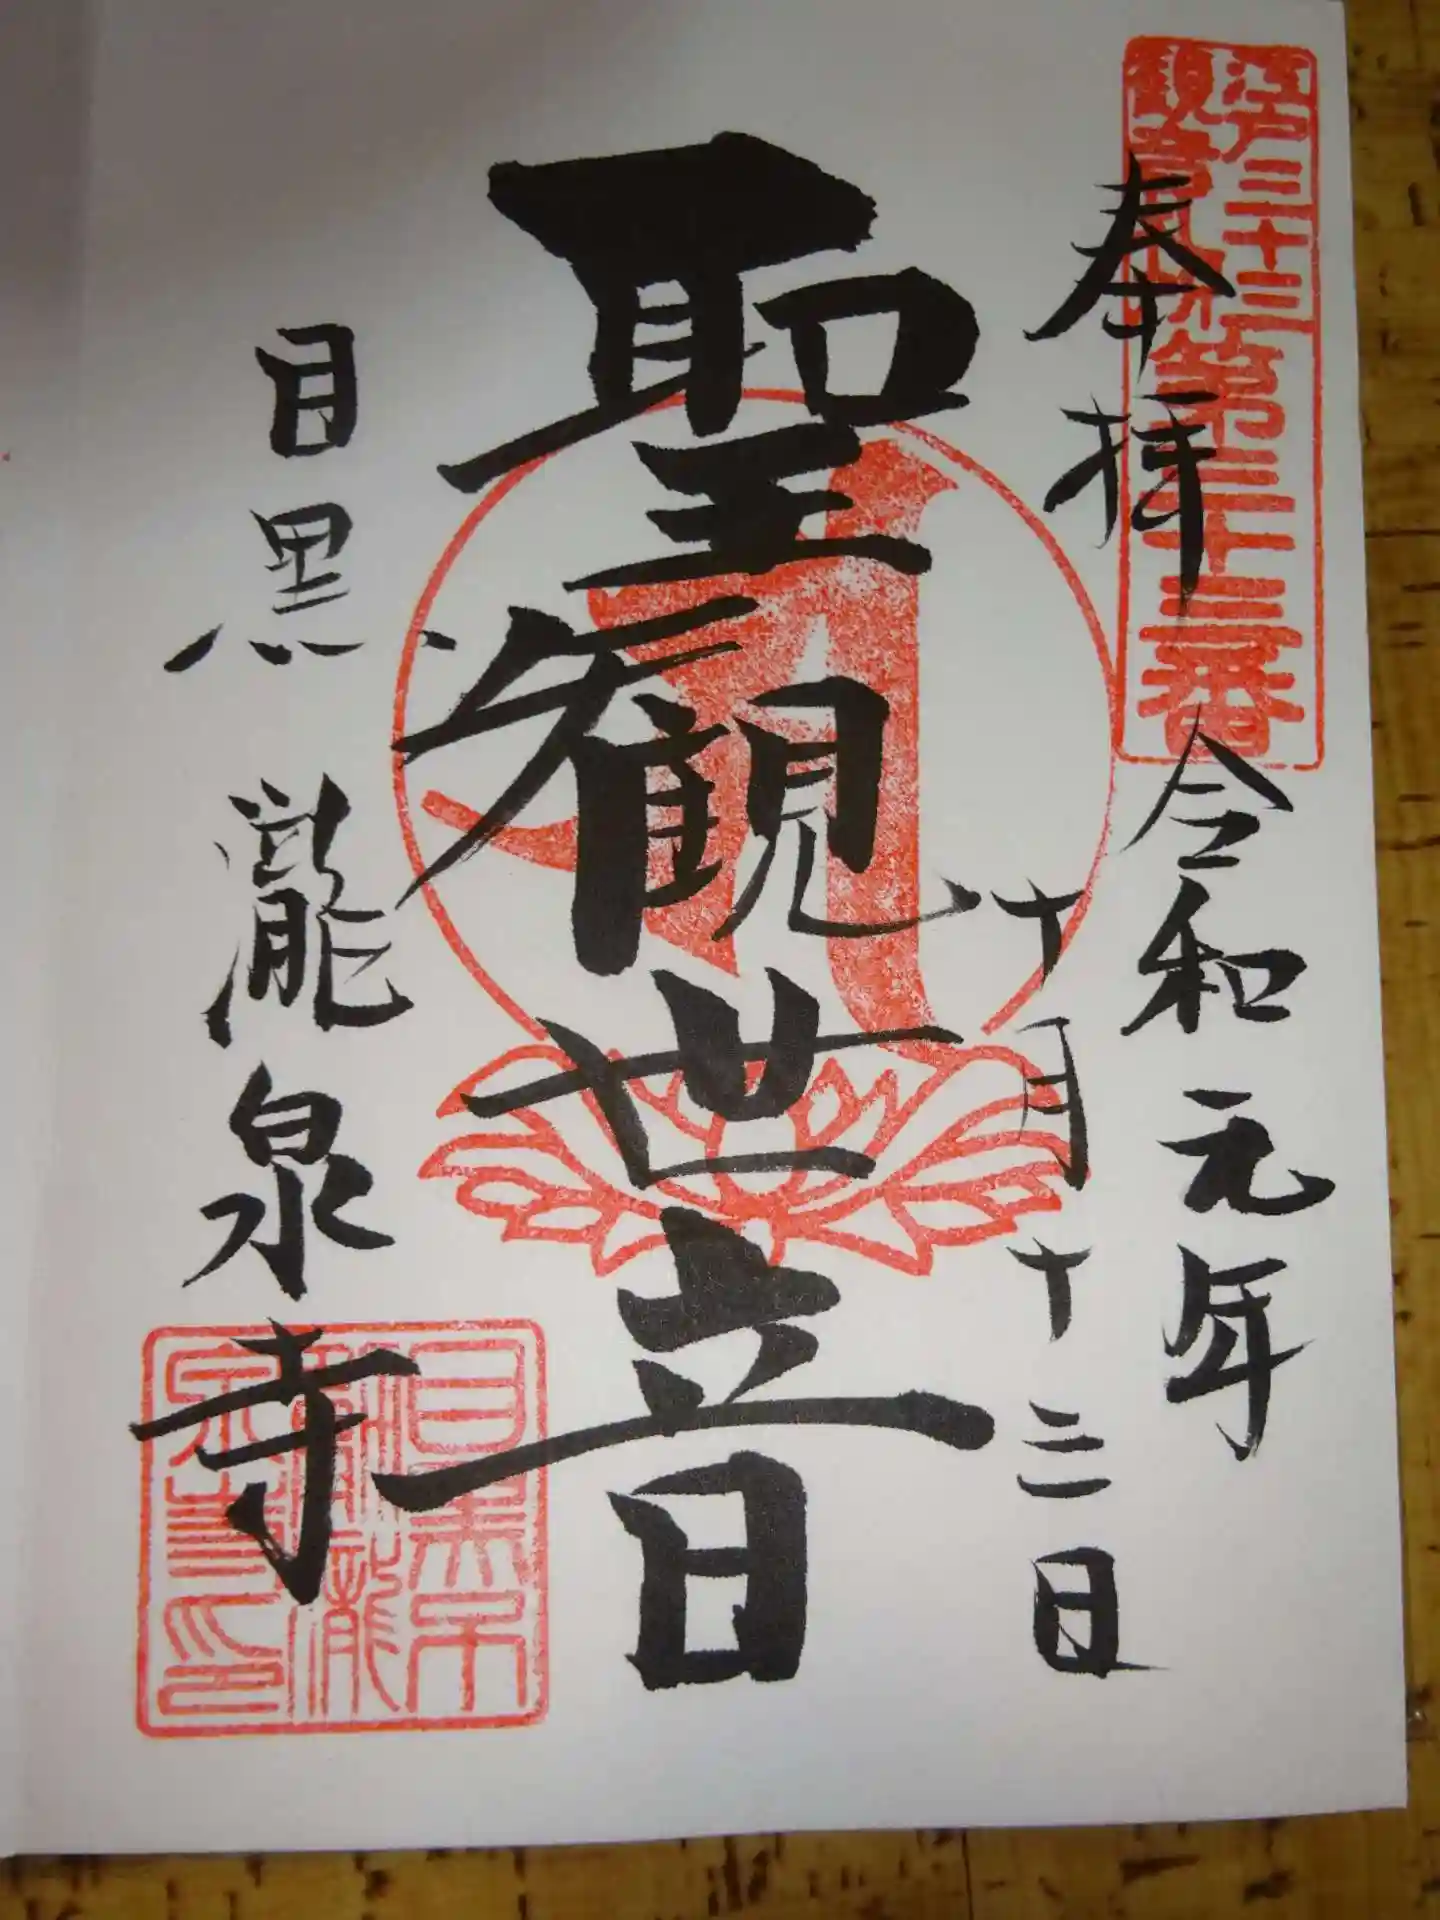 江戸三十三
観音札所
第三十三番
奉拝
令和元年
十月十三日
聖観世音
目黒 瀧泉寺
目黒不
動瀧
泉寺印